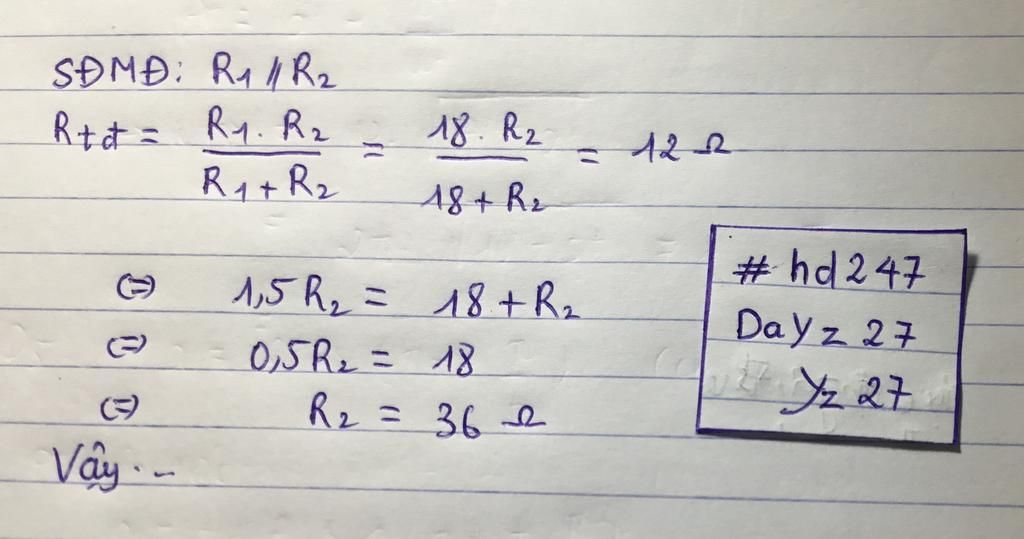 SĐMĐ: R1 // R2
Rtđ = R1 . R2 / R1 + R2 = 18 . R2 / 18 + R2 = 12 Ω
(=) 1,5 R2 = 18 + R2
(=) 0,5 R2 = 18
(=) R2 = 36 Ω
Vậy . --
# hd247
DaYz 27
Yz 27